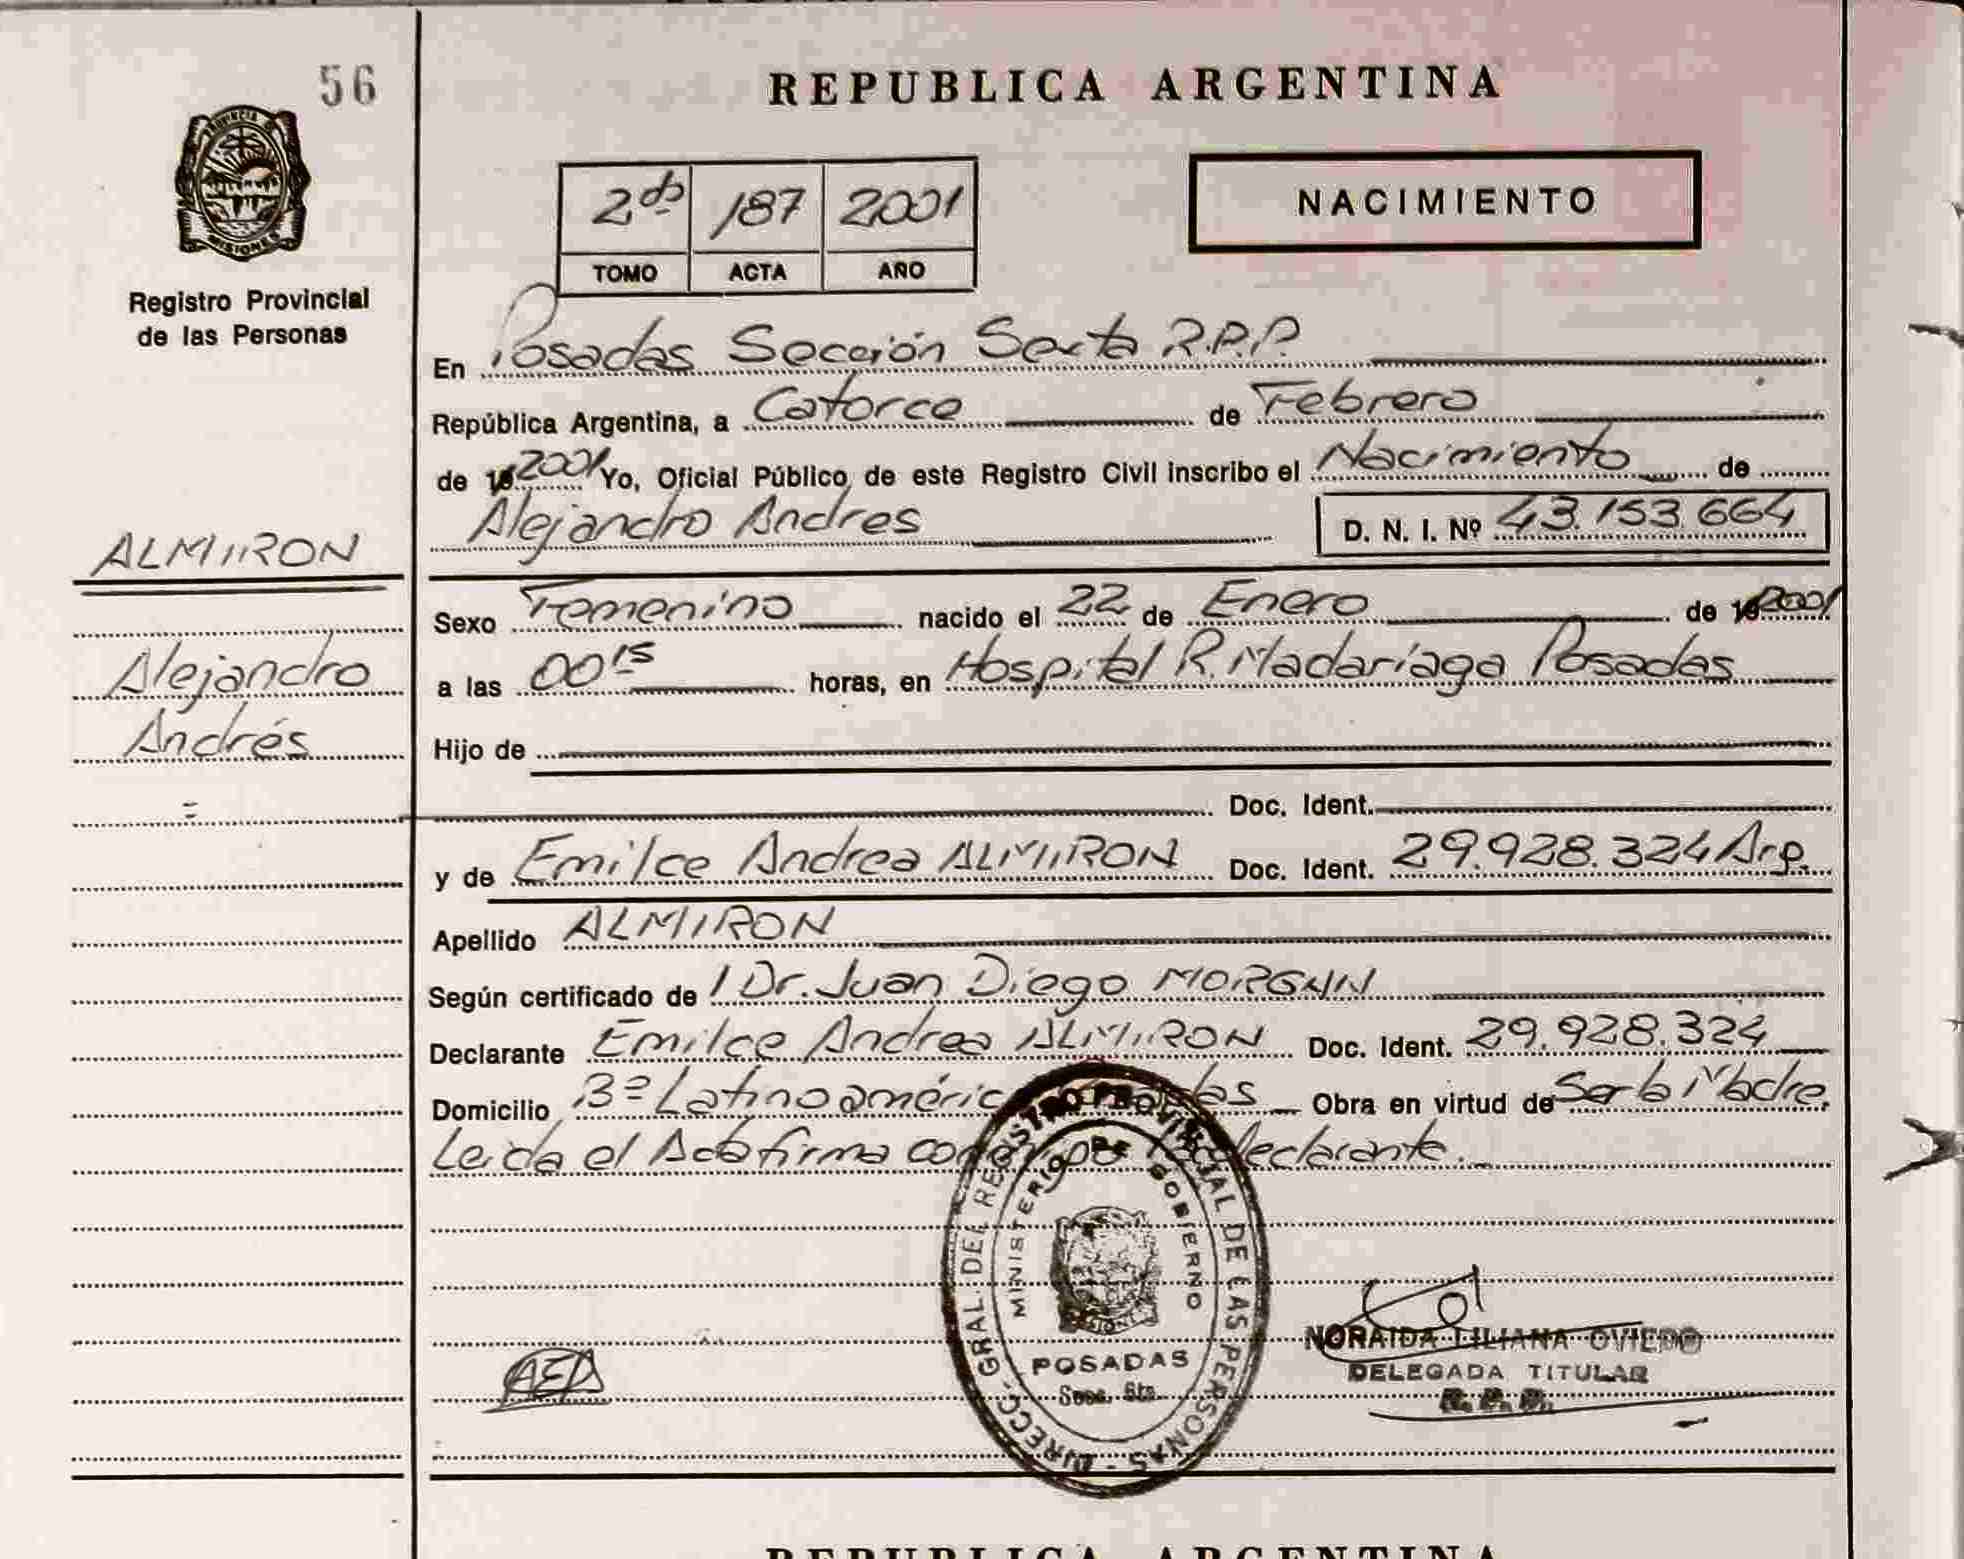 56
REPUBLICA ARGENTINA
PROVINCIA D
MISIONES
Registro Provincial
de las Personas
2do 187 2001
TOMO ACTA AÑO
NACIMIENTO
En Posadas Sección Sexta R.P.P.
República Argentina, a Catorce de Febrero
de 192001 Yo, Oficial Público de este Registro Civil inscribo el Nacimiento de
Alejandro Andres D. N. I. Nº 43.153.664
ALMIRON
Alejandro
Andrés
=
Sexo Femenino nacido el 22 de Enero de 192001
a las 00 15 horas, en Hospital R. Madariaga Posadas
Hijo de
Doc. Ident.
y de Emilce Andrea ALMIRON Doc. Ident. 29.928.324 Arg.
Apellido ALMIRON
Según certificado de / Dr. Juan Diego MORGAN
Declarante Emilce Andrea ALMIRON Doc. Ident. 29.928.324
Domicilio Latinoaméric Obra en virtud de Ser la Madre.
Leida el Acta firma declarante.
DIRECC. GRAL. DEL REGISTRO PROVINCIAL DE LAS PERSONAS
MINISTERIO DE GOBIERNO
POSADAS
Secc. 6ta.
AEA
NORAIDA LILIANA OVIEDO
DELEGADA TITULAR
R. P. P.
REPUBLICA ARGENTINA